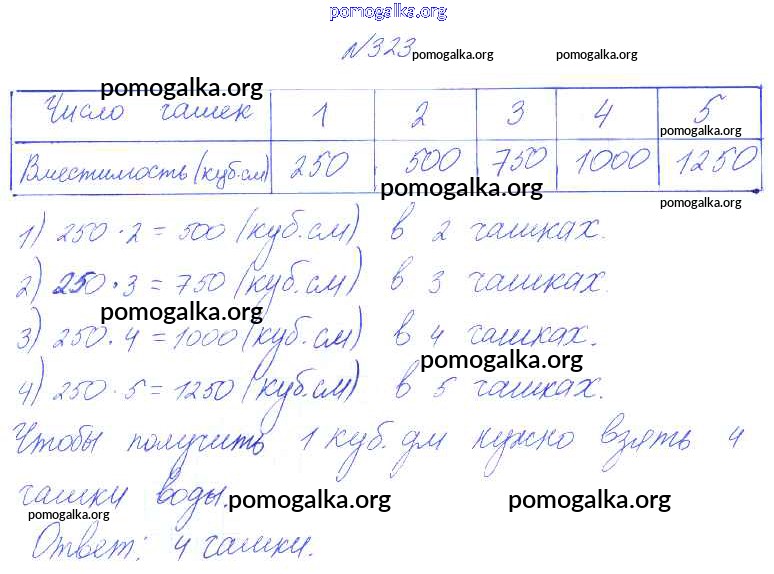 pomogalka.org
№323 pomogalka.org pomogalka.org
pomogalka.org
Число чашек 1 2 3 4 5
pomogalka.org
Вместимость (куб.см) 250 500 750 1000 1250
pomogalka.org pomogalka.org
1) 250 · 2 = 500 (куб.см) в 2 чашках.
2) 250 · 3 = 750 (куб.см) в 3 чашках.
pomogalka.org
3) 250 · 4 = 1000 (куб.см) в 4 чашках.
pomogalka.org
4) 250 · 5 = 1250 (куб.см) в 5 чашках.
Чтобы получить 1 куб. дм нужно взять 4
чашки воды.
pomogalka.org pomogalka.org
pomogalka.org
Ответ: 4 чашки.